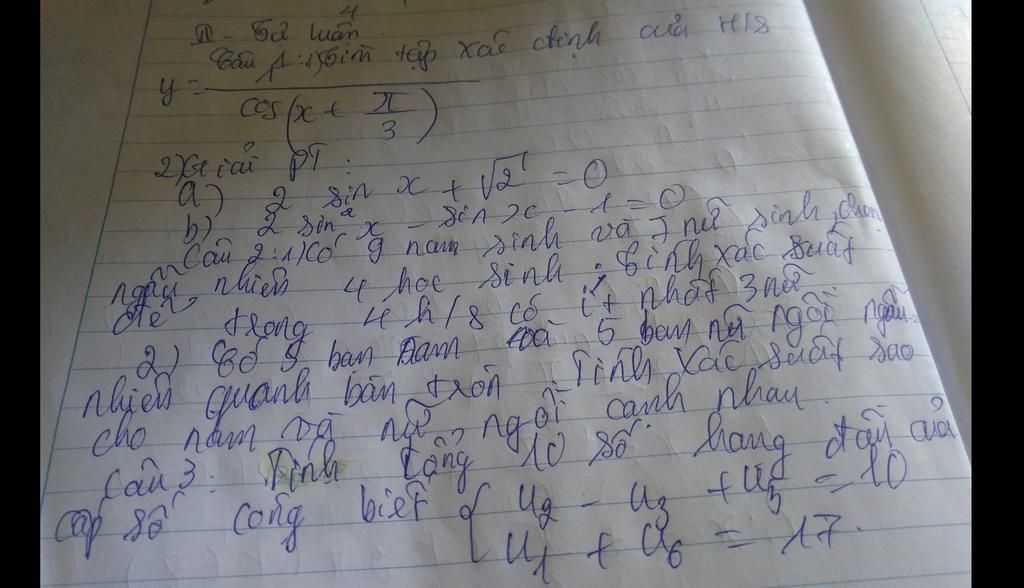 II - Tự luận
4
Câu 1: 1) Tìm tập xác định của H/s
y = ─────
cos(x + π/3)
2) Giải PT:
a) 2 sin x + √2 = 0
b) 2 sin² x - sin x - 1 = 0
Câu 2: 1) Có 9 nam sinh và 7 nữ sinh, chọn
ngẫu nhiên 4 học sinh. Tính xác suất
để trong 4 h/s có ít nhất 3 nữ
2) Có 5 bạn nam và 5 bạn nữ ngồi ngẫu
nhiên quanh bàn tròn. Tính xác suất sao
cho nam và nữ ngồi cạnh nhau.
Câu 3: Tính tổng 10 số hạng đầu của
cấp số cộng biết { u₂ - u₃ + u₅ = 10
u₁ + u₆ = 17.